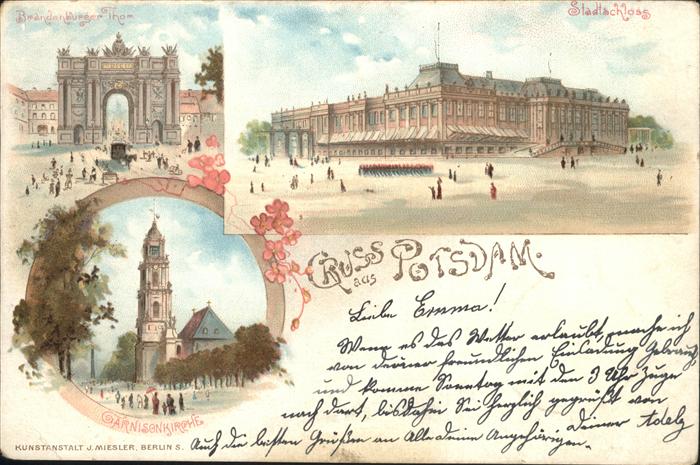 Brandenburger Thor
Stadtschloss
Gruss
aus
Potsdam.
Liebe Emma!
Wenn es das Wetter erlaubt, mache ich
von deiner freundlichen Einladung Gebrauch,
und komme Sonntag mit den 3 Uhr Zuge
nach dort, bis dahin sei herzlich gegrüßt von
deiner Adelg
Auch die besten Grüßen an Alle deine Angehörigen.
Garnisonkirche
KUNSTANSTALT J. MIESLER, BERLIN S.